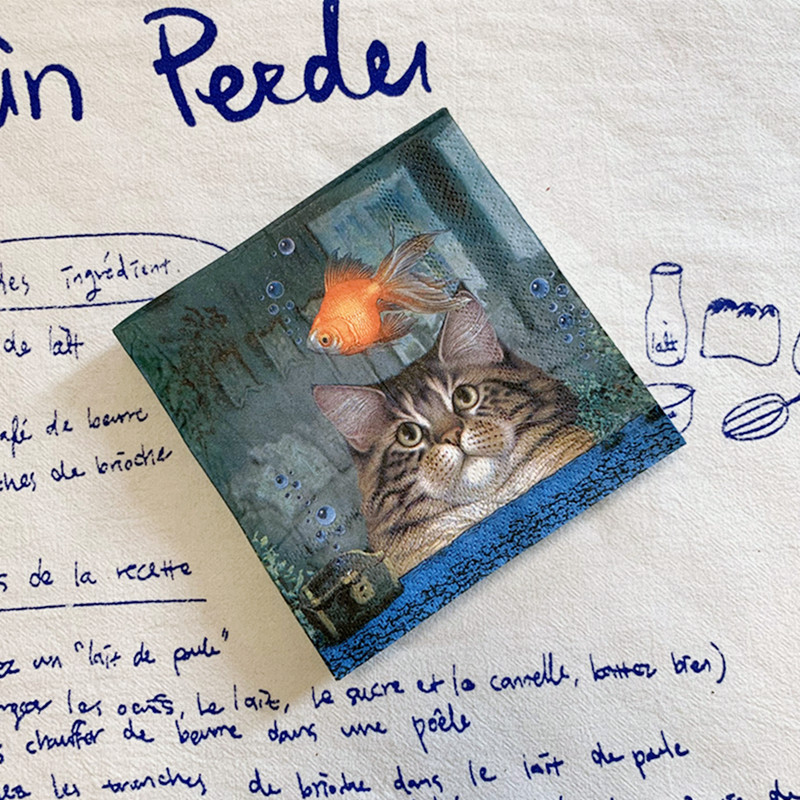 Perdu
des ingrédient.
de lait
lait
café de beurre
ches de brioche
de la recette
ez un "lait de poule"
les oeufs, le lait, le sucre et la cannelle, battez bien)
chauffer de beurre dans une poêle
ez les tranches de brioche dans le lait de poule